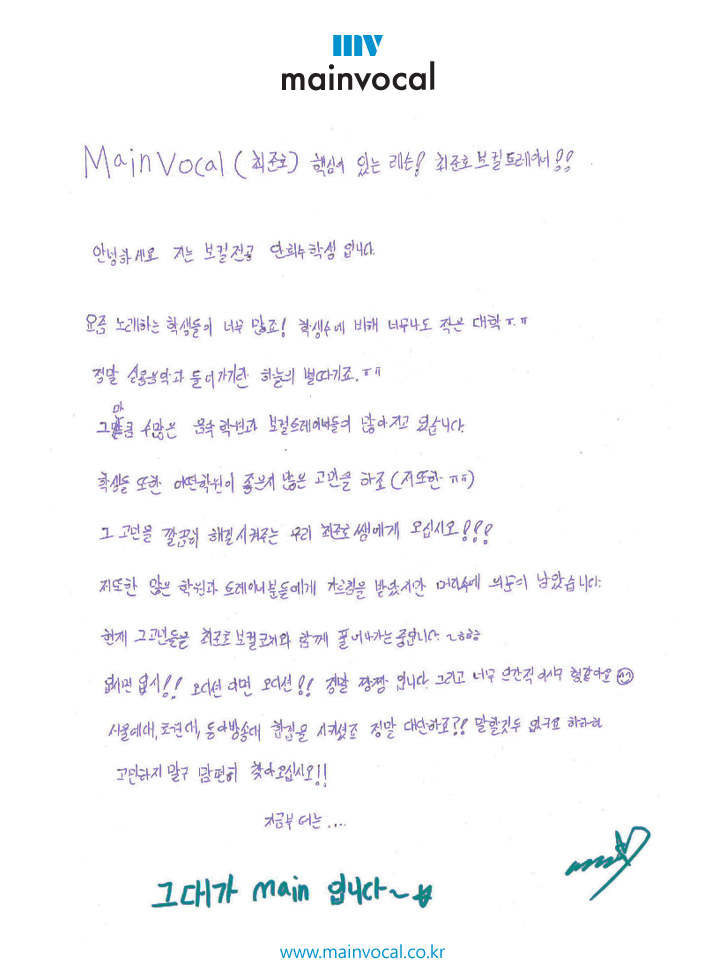 mv
mainvocal
Main Vocal (최준호) 핵심이 있는 레슨! 최준호 보컬트레이너!!
안녕하세요 저는 보컬전공 안희수학생 입니다.
요즘 노래하는 학생들이 너무 많죠! 학생수에 비해 너무나도 작은 대학ㅠ.ㅠ
정말 실용음악과 들어가기란 하늘의 별따기죠.ㅠㅠ
그만큼 수많은 음악 학원과 보컬트레이너들이 많아지고 있습니다.
학생들 또한 어떤학원이 좋은지 많은 고민을 하죠 (저또한 ㅠㅠ)
그 고민을 깔끔히 해결시켜주는 우리 최준호쌤에게 오십시오!!!
저또한 많은 학원과 트레이너분들에게 가르침을 받았지만 머리속에 의문이 남았습니다.
현재 그고민들을 최준호 보컬코치와 함께 풀어나가는중입니다. ~ㅎㅎㅎ
입시면 입시!! 오디션 이면 오디션!! 정말 짱짱 입니다 그리고 너무 인간적 이시구 형같아요 ^^
서울예대, 호원대, 동아방송대 합격을 시키셨죠 정말 대단하죠?! 말할것두 없구요 하하하
고민하지 말구 맘편히 찾아오십시오!!
지금부터는....
그대가 main 입니다~
www.mainvocal.co.kr